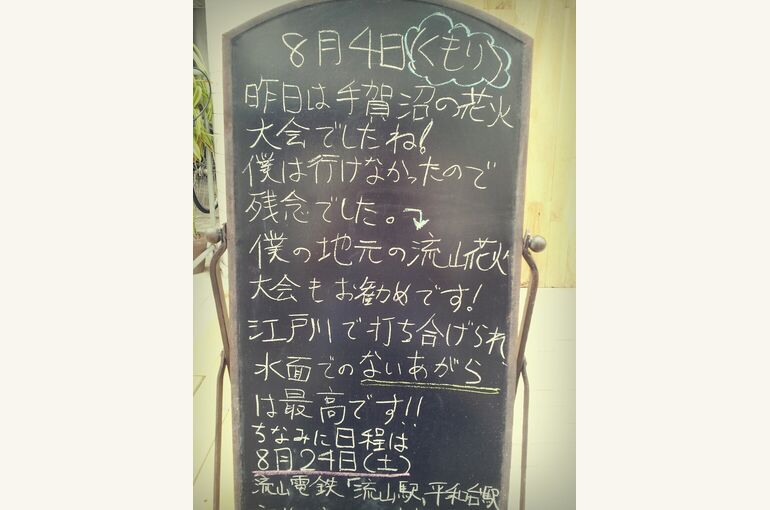 8月4日(くもり)
昨日は手賀沼の花火
大会でしたね!
僕は行けなかったので
残念でした。
僕の地元の流山花火
大会もお勧めです!
江戸川で打ち合げられ、
水面でのないあがら
は最高です!!
ちなみに日程は
8月24日(土)
流山電鉄「流山駅、平和台駅